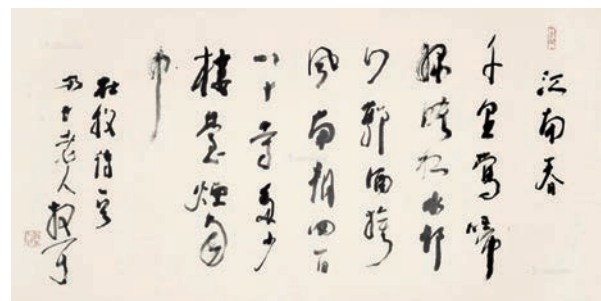 江南春
千里鶯啼
綠映紅水邨
山郭酒旗
風南朝四百
八十寺多少
樓臺煙雨
中
杜牧詩
十老人